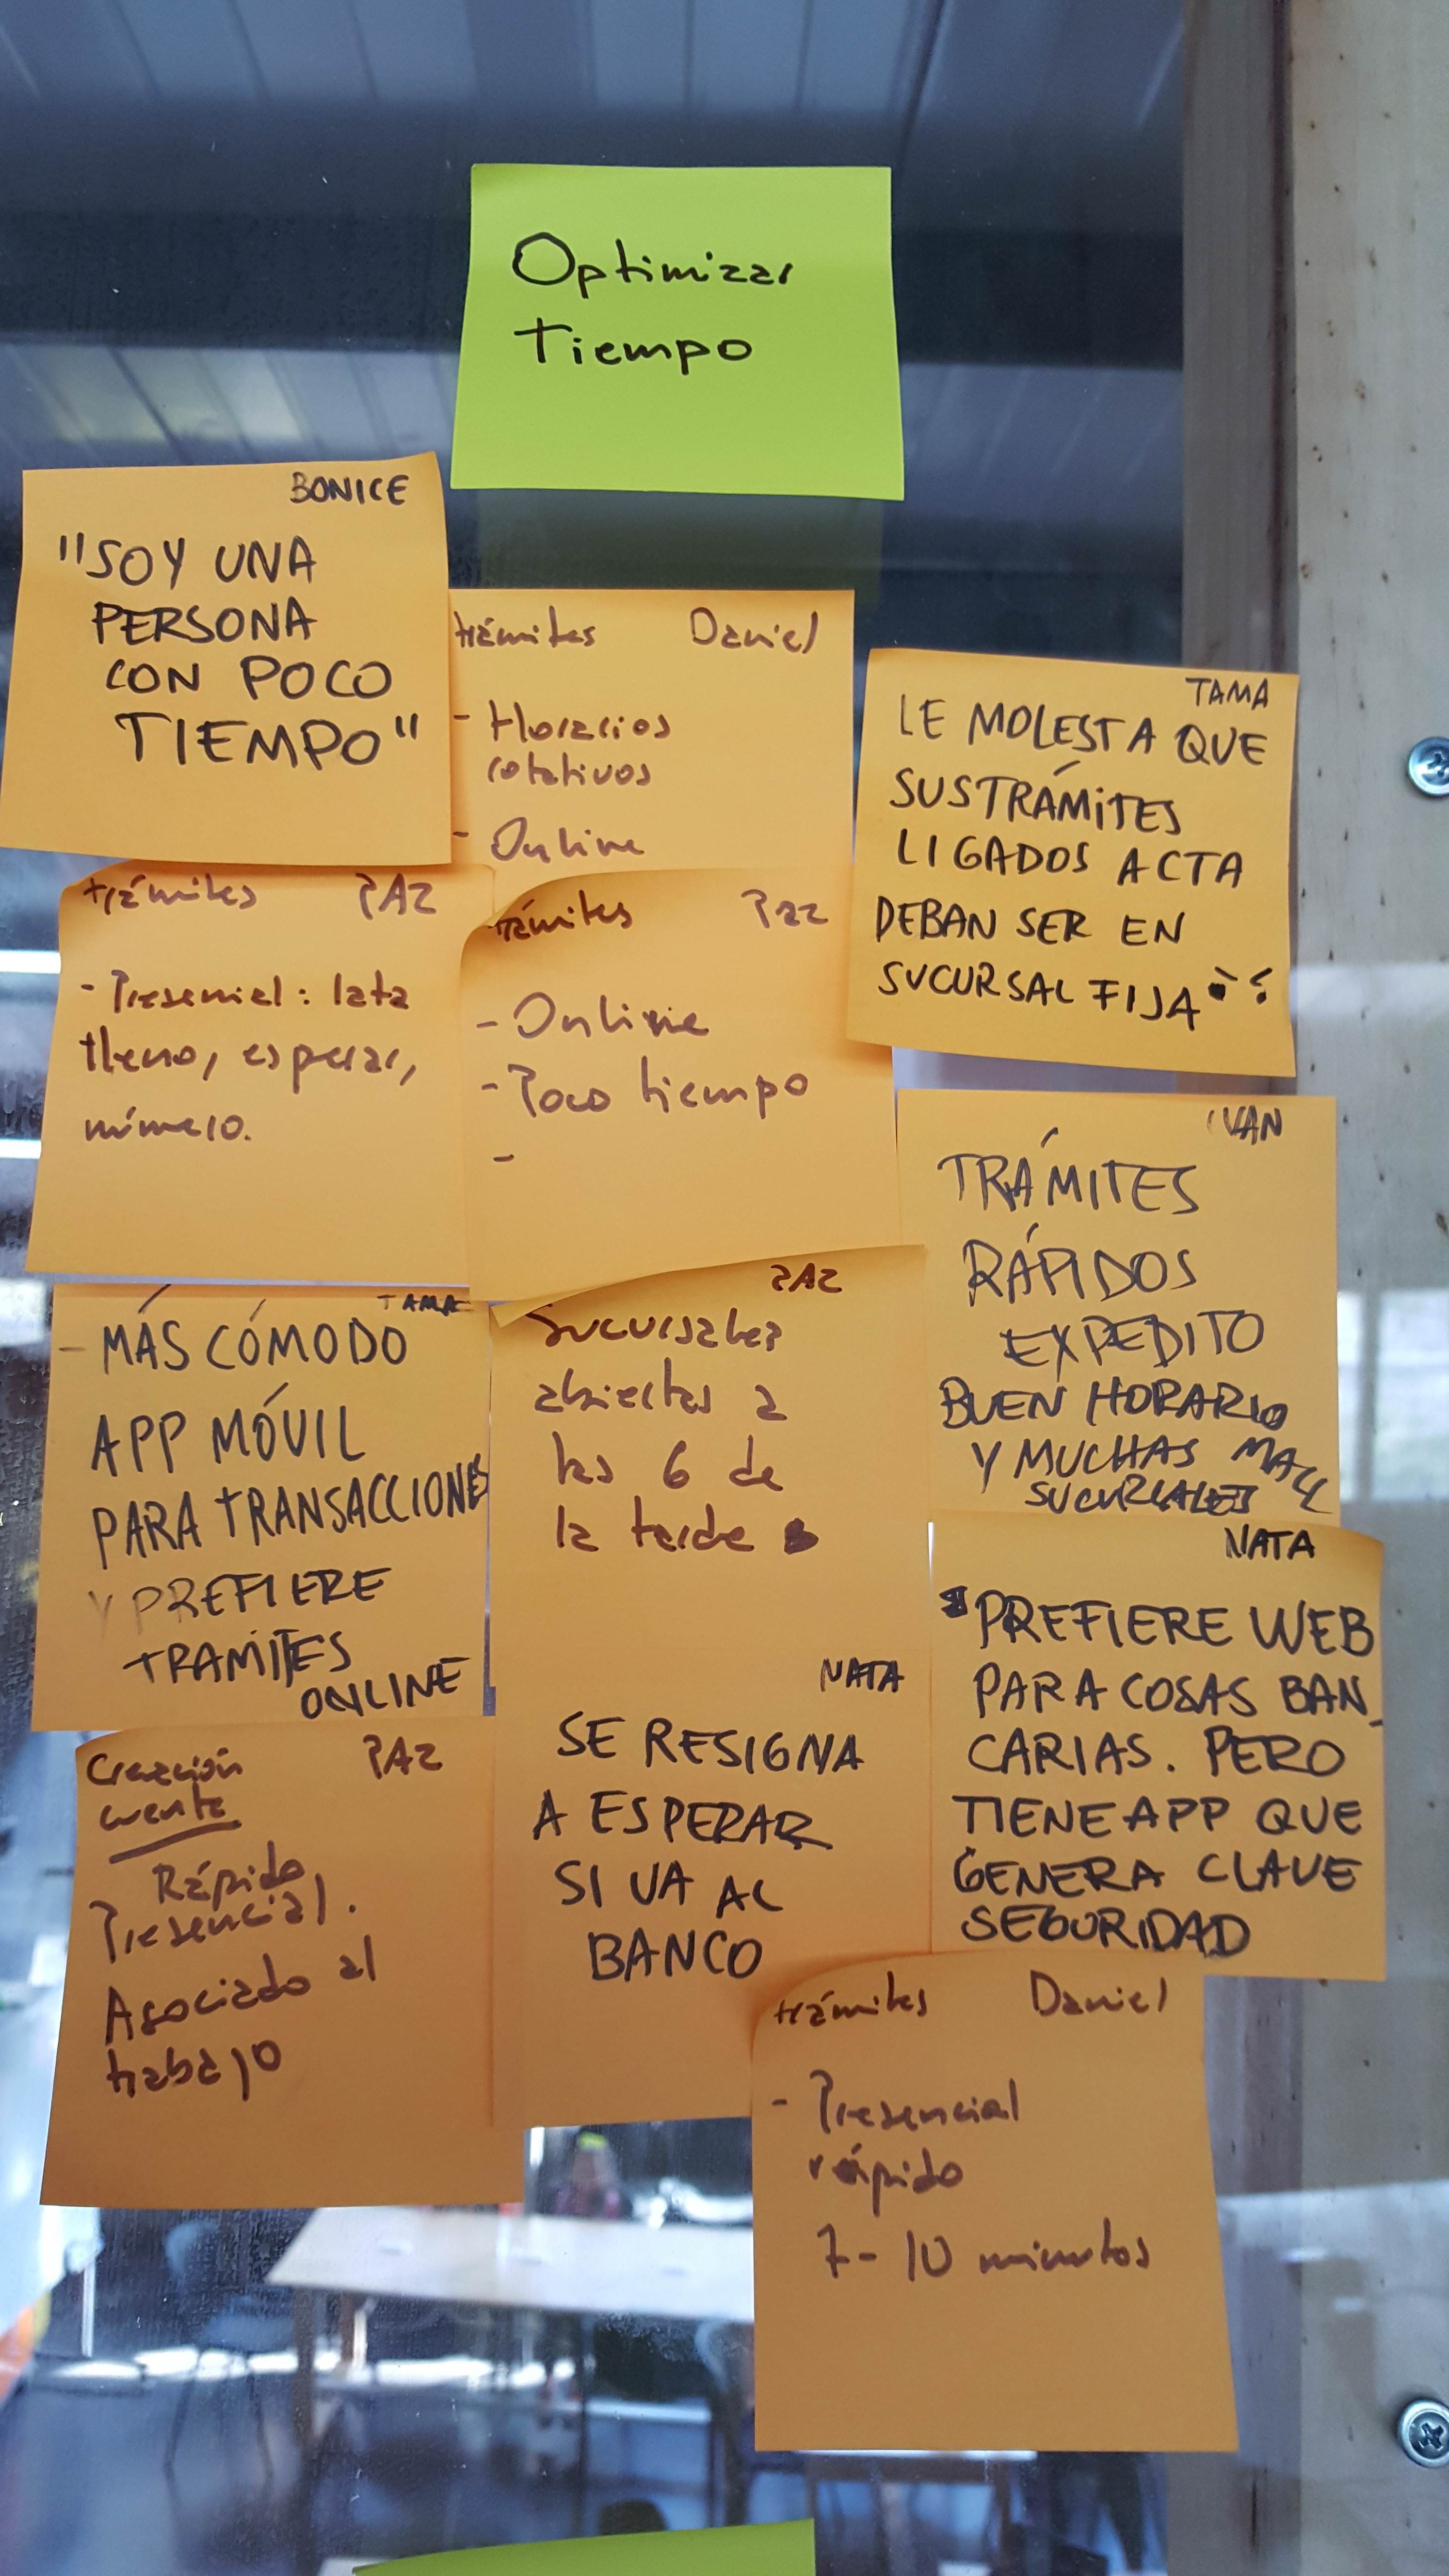 Optimizar
Tiempo
BONICE
"SOY UNA
PERSONA
CON POCO
TIEMPO"
trámites Daniel
- Horarios
rotativos
- Online
TAMA
LE MOLESTA QUE
SUS TRÁMITES
LIGADOS A CTA
DEBAN SER EN
SUCURSAL FIJA
trámites PAZ
- Presencial: lata
lleno, esperar,
número.
trámites Paz
- Online
- Poco tiempo
-
IVAN
TRÁMITES
RÁPIDOS
EXPEDITO
BUEN HORARIO
Y MUCHAS MALL
SUCURSALES
TAMA
- MÁS CÓMODO
APP MÓVIL
PARA TRANSACCIONES
Y PREFIERE
TRAMITES
ONLINE
PAZ
Sucursales
abiertas a
las 6 de
la tarde
NATA
PREFIERE WEB
PARA COSAS BAN_
CARIAS. PERO
TIENE APP QUE
GENERA CLAVE
SEGURIDAD
NATA
SE RESIGNA
A ESPERAR
SI VA AL
BANCO
Creación PAZ
cuenta
Rápido
Presencial.
Asociado al
trabajo
trámites Daniel
- Presencial
rápido
7-10 minutos